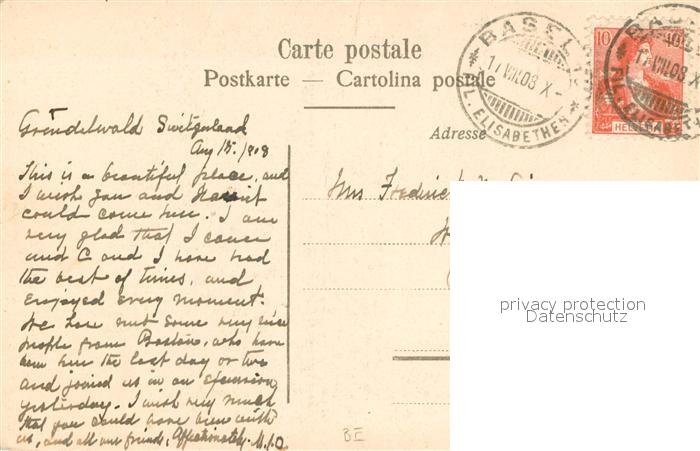 Carte postale
Postkarte — Cartolina postale
Adresse
BASEL
17.VIII.08 X-
FIL. ELISABETHEN
10
HELVETIA
BASEL
17.VIII.08 X
FIL. ELISABETHEN
Grindelwald Switzerland
Aug 15. 1908
This is a beautiful place, and
I wish you and
could come here. I am
very glad that I came
and C and I have had
the best of times, and
enjoyed every moment.
We have met some very nice
people from Boston, who have
been here the last day or two
and joined us in an excursion
yesterday. I wish very much
that you could have been with
us, and all our friends, Affectionately M.
Mrs Frederick
privacy protection
Datenschutz
BE